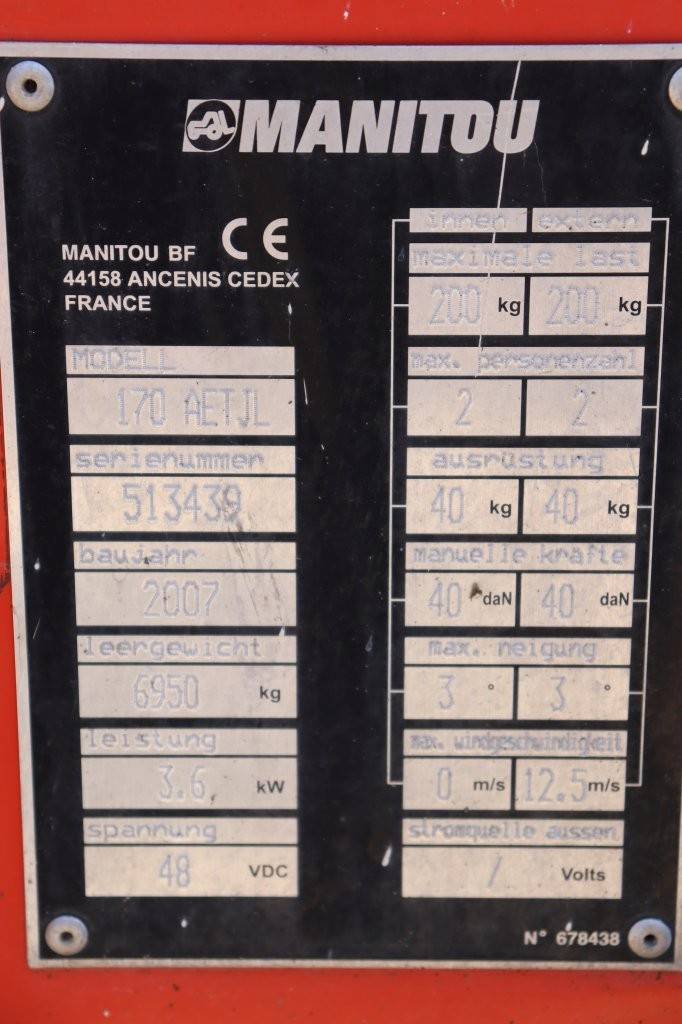 MANITOU
CE
MANITOU BF
44158 ANCENIS CEDEX
FRANCE
MODELL
170 AETJL
seriennummer
513439
baujahr
2007
leergewicht
6950 kg
leistung
3.6 kW
spannung
48 VDC
innen extern
maximale last
200 kg 200 kg
max. personenzahl
2 2
ausrüstung
40 kg 40 kg
manuelle kräfte
40 daN 40 daN
max. neigung
3 ° 3 °
max. windgeschwindigkeit
0 m/s 12.5 m/s
stromquelle aussen
/ Volts
N° 678438